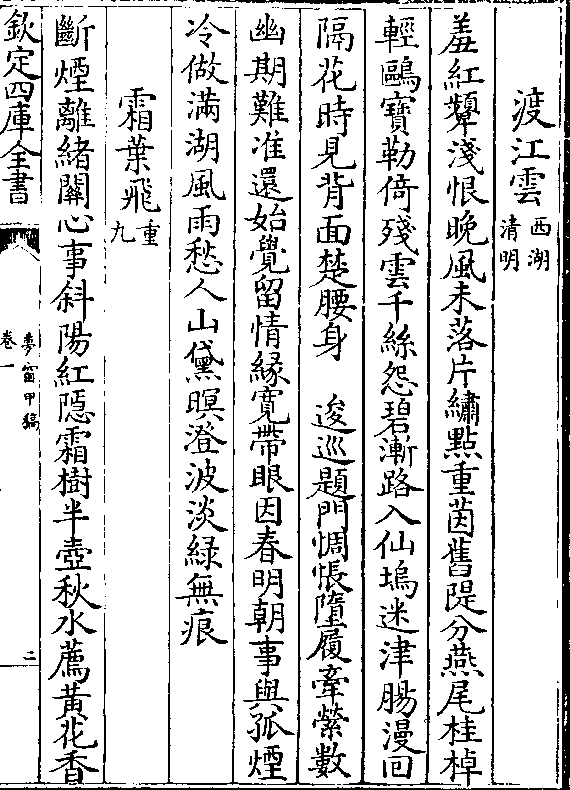 渡江雲西湖清明
羞紅顰淺恨晚風未落片繡點重茵舊隄分燕尾桂棹
輕鷗寶勒倚殘雲千絲怨碧漸路入仙塢迷津腸漫回
隔花時見背面楚腰身　逡巡題門惆悵墮履牽縈數
幽期難准還始覺留情緣寬帶眼因春明朝事與孤煙
冷做滿湖風雨愁人山黛暝澄波淡綠無痕
霜葉飛重九
斷煙離緒關心事斜陽紅隱霜樹半壺秋水薦黃花香
欽定四庫全書
夢窗甲稿
卷一
二